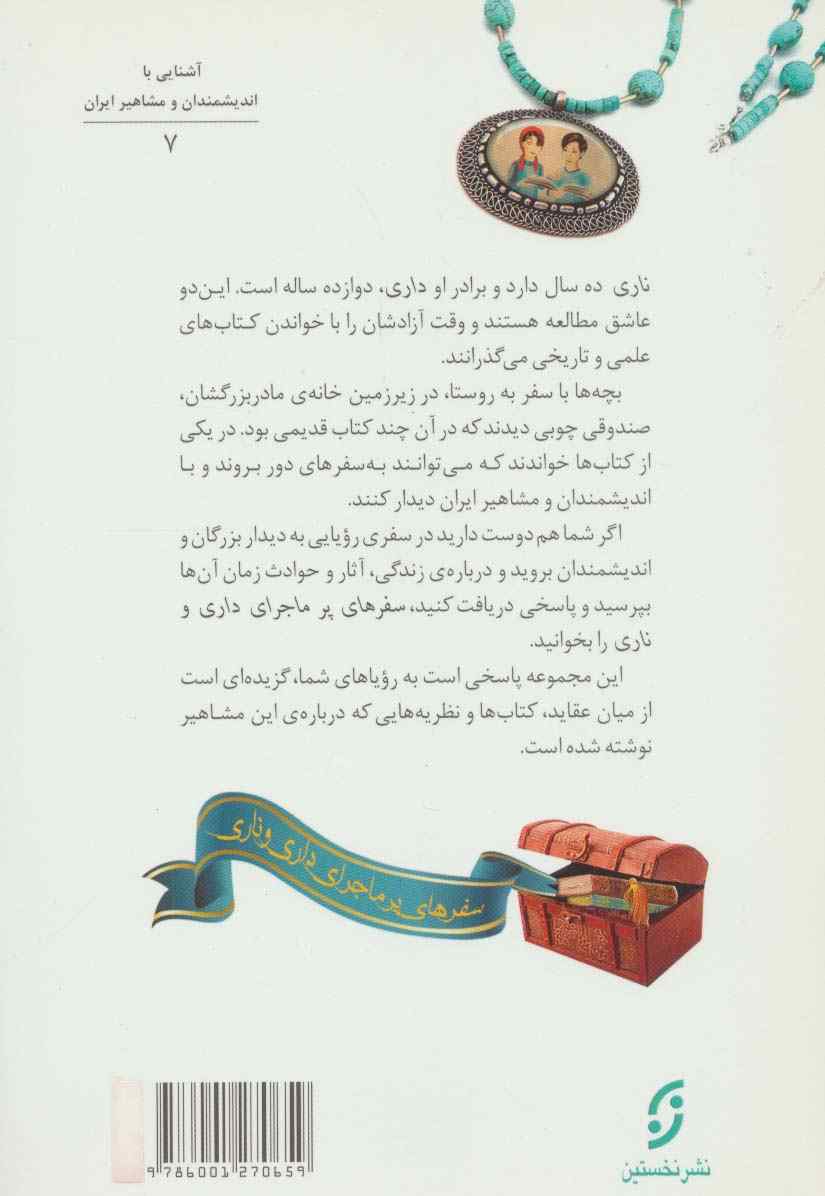 آشنایی با
اندیشمندان و مشاهیر ایران
۷
ناری ده سال دارد و برادر او داری، دوازده ساله است. این‌دو
عاشق مطالعه هستند و وقت آزادشان را با خواندن کتاب‌های
علمی و تاریخی می‌گذرانند.
بچه‌ها با سفر به روستا، در زیرزمین خانه‌ی مادربزرگشان،
صندوقی چوبی دیدند که در آن چند کتاب قدیمی بود. در یکی
از کتاب‌ها خواندند که می‌توانند به‌سفرهای دور بروند و با
اندیشمندان و مشاهیر ایران دیدار کنند.
اگر شما هم دوست دارید در سفری رؤیایی به دیدار بزرگان و
اندیشمندان بروید و درباره‌ی زندگی، آثار و حوادث زمان آن‌ها
بپرسید و پاسخی دریافت کنید، سفرهای پر ماجرای داری و
ناری را بخوانید.
این مجموعه پاسخی است به رؤیاهای شما، گزیده‌ای است
از میان عقاید، کتاب‌ها و نظریه‌هایی که درباره‌ی این مشاهیر
نوشته شده است.
سفرهای پرماجرای داری و ناری
9 786001 270659
نشر نخستین